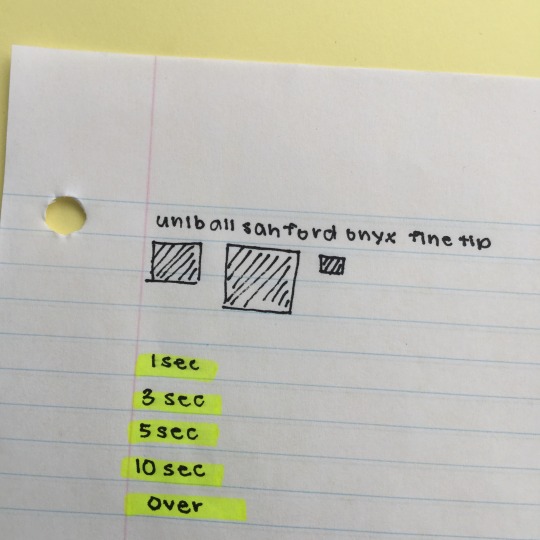 uniball sanford onyx fine tip
1 sec
3 sec
5 sec
10 sec
over